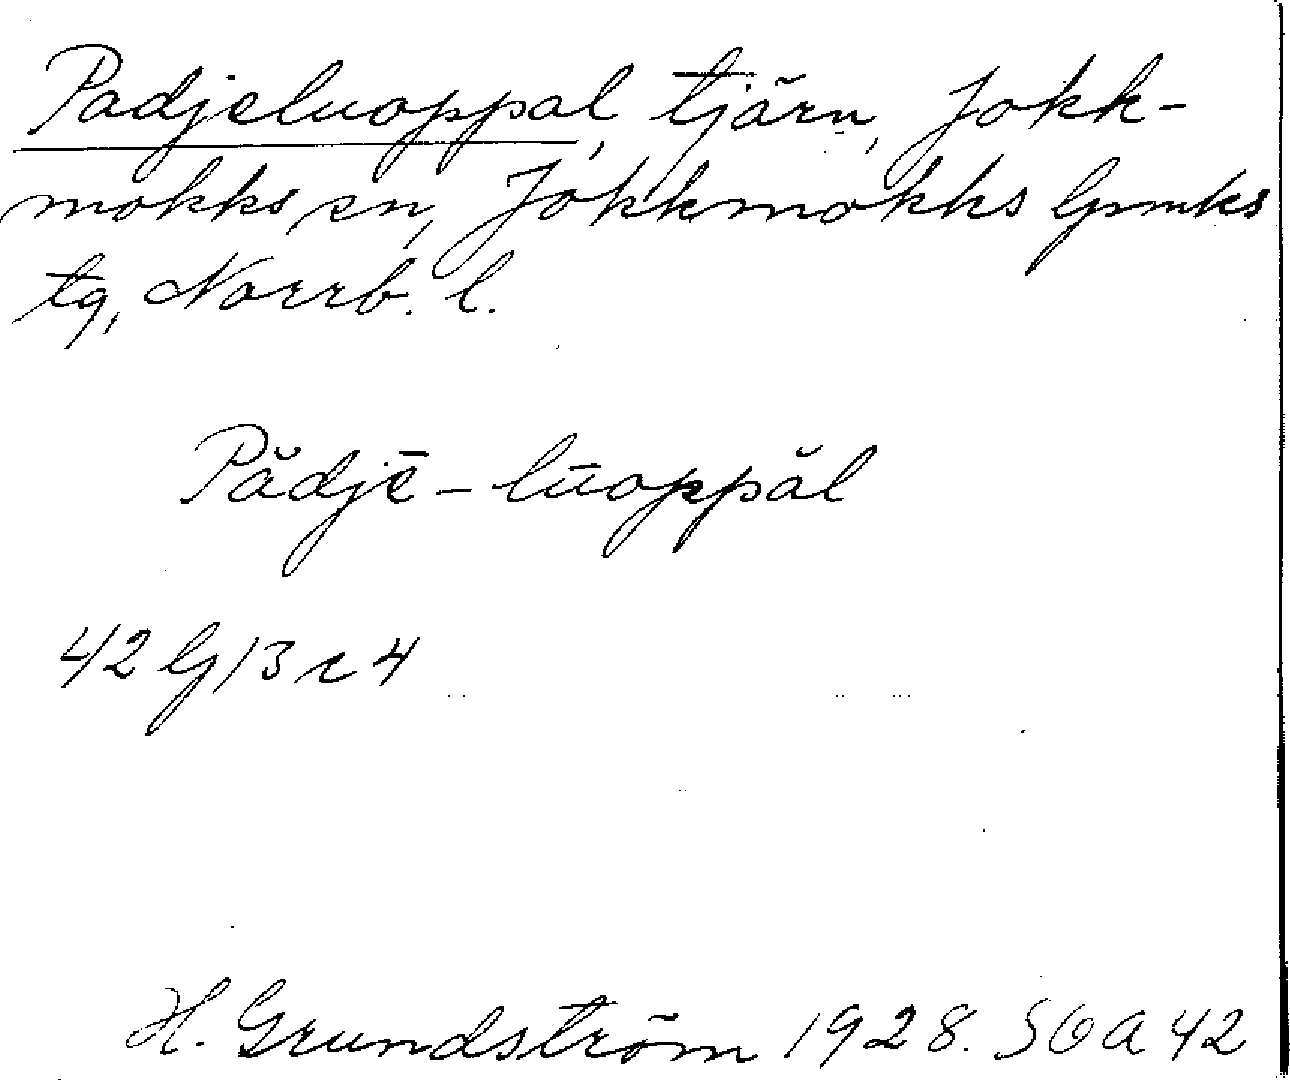 Padjeluoppal, tjärn, Jokk-
mokks sn, Jokkmokks lpmks
tg, Norrb. l.
Pădjē-lūoppăl
42 G 13 c 4
H. Grundström 1928. SOA 42